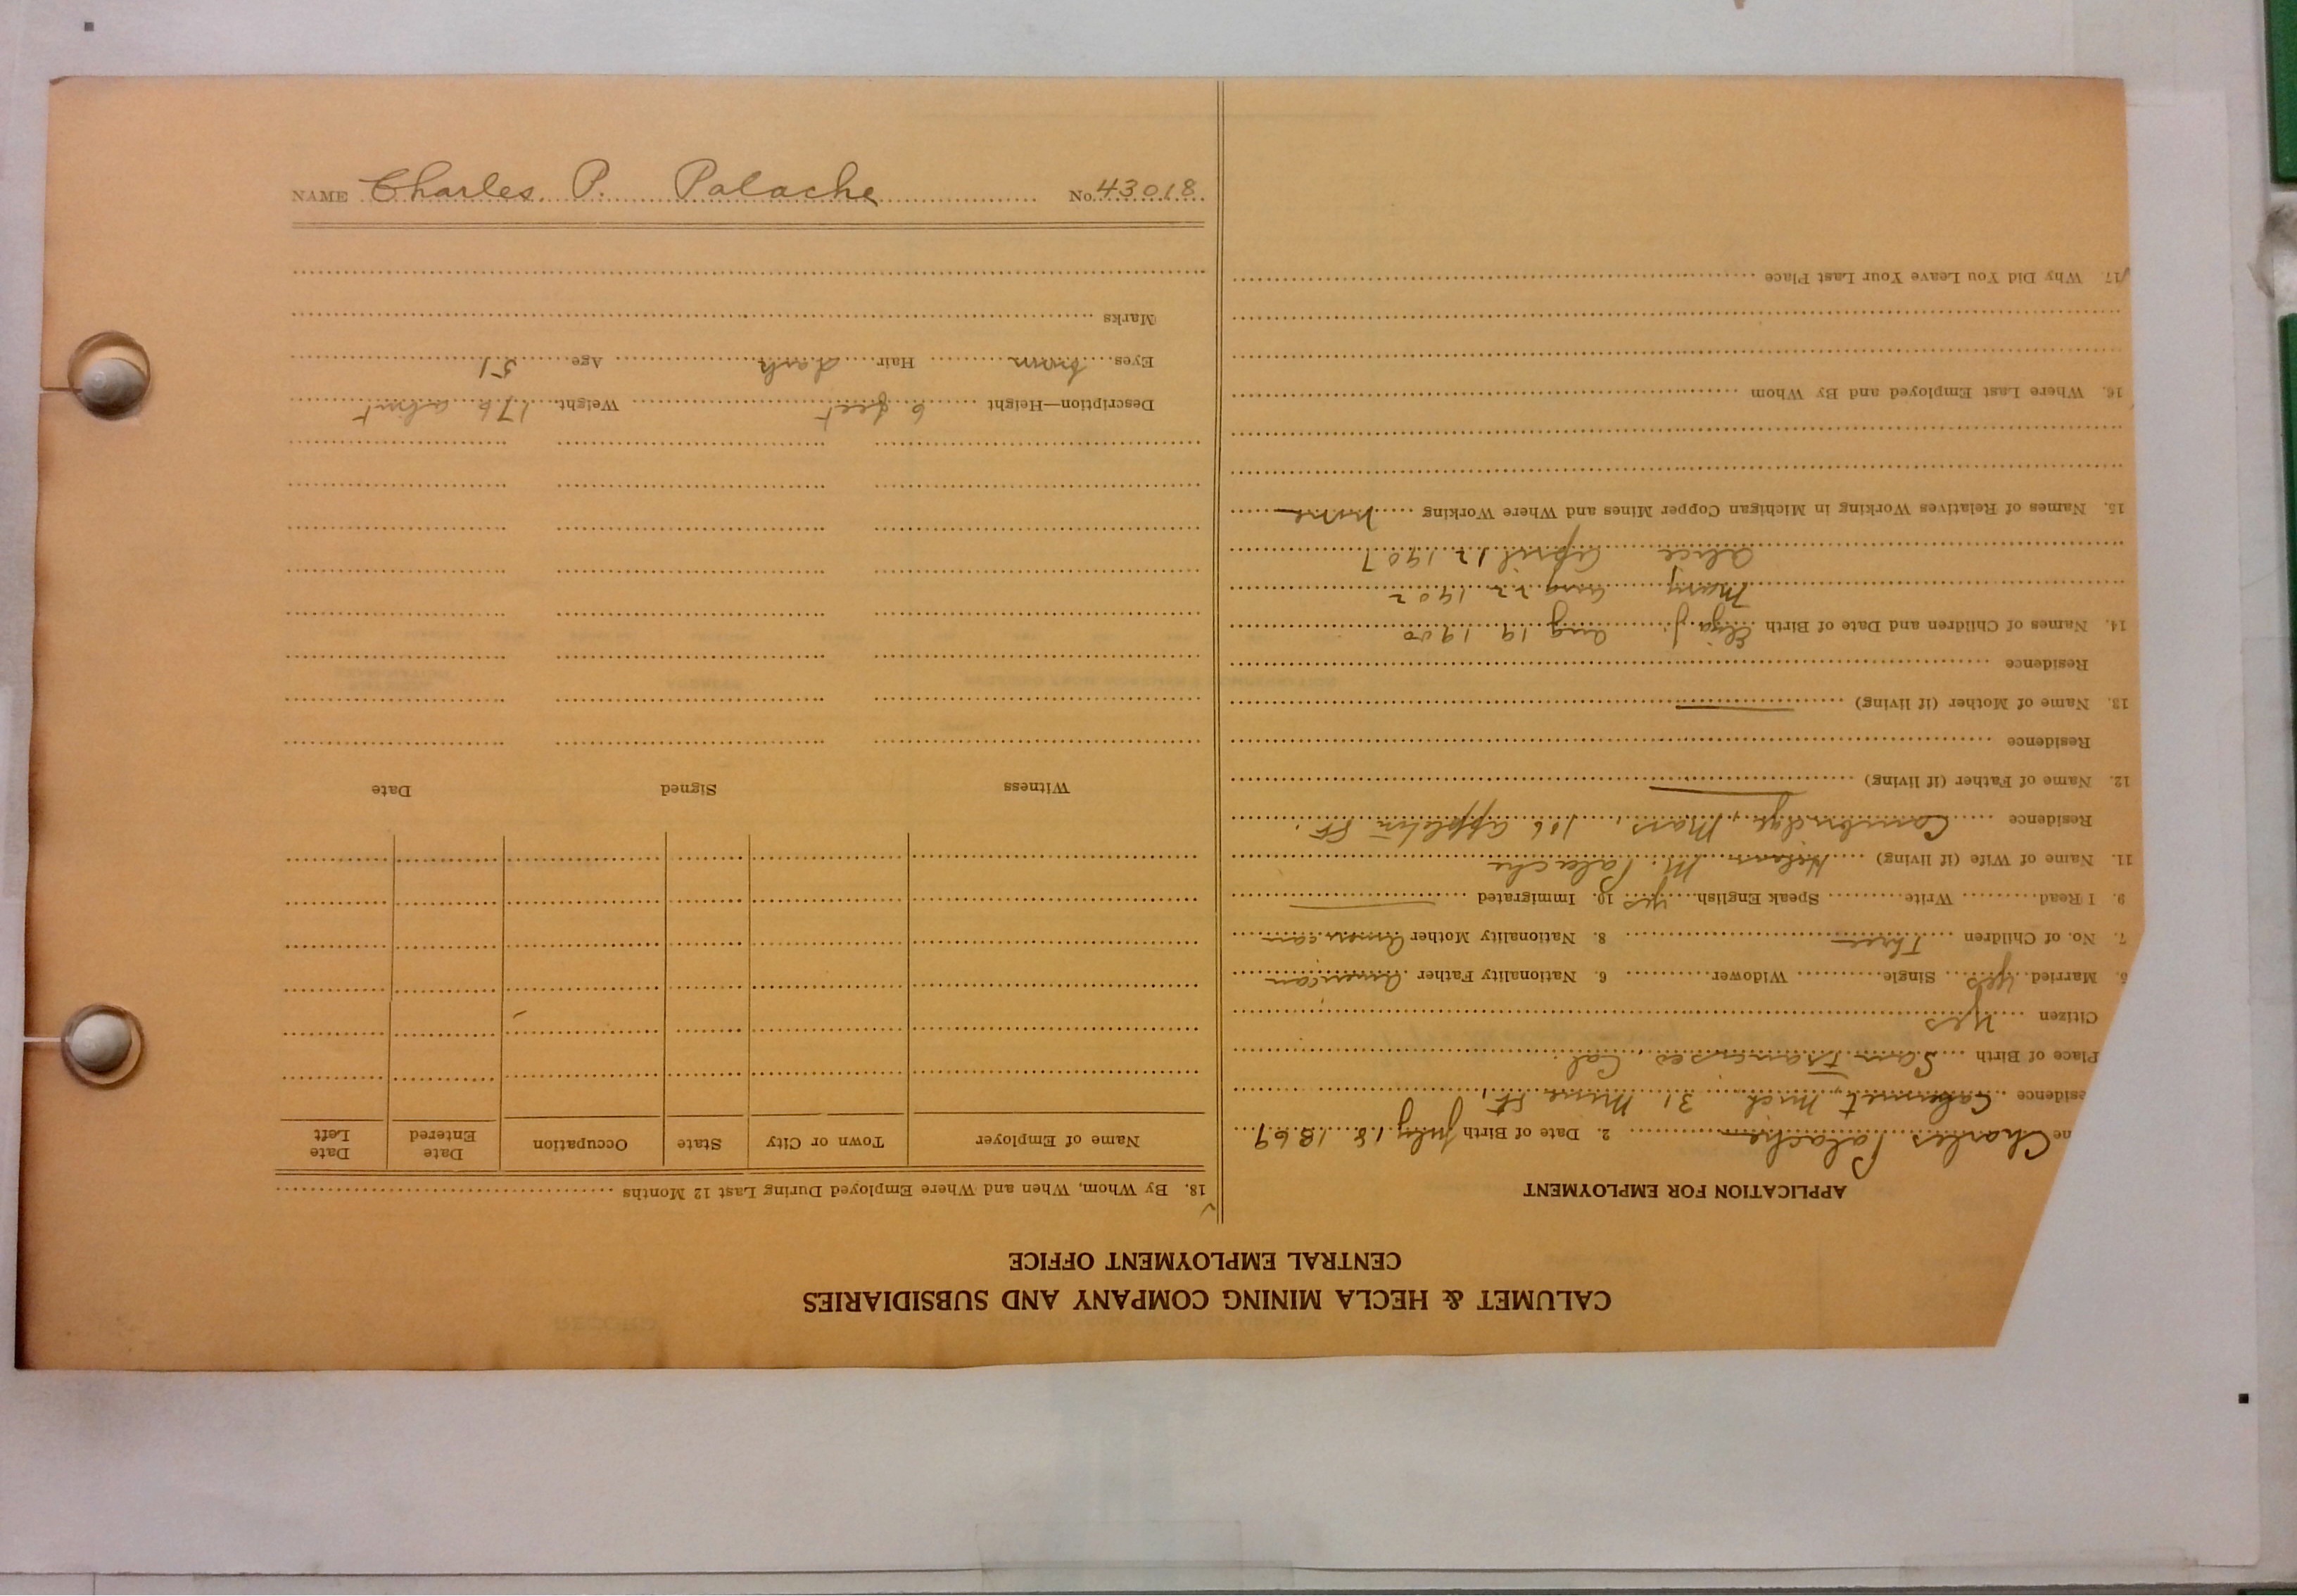 CALUMET & HECLA MINING COMPANY AND SUBSIDIARIES
CENTRAL EMPLOYMENT OFFICE
APPLICATION FOR EMPLOYMENT
me Charles Palache 2. Date of Birth July 18 1869
esidence Calumet, Mich 31 Mine St.
Place of Birth San Francisco, Cal.
Citizen yes
5. Married yes Single Widower 6. Nationality Father American
7. No. of Children Three 8. Nationality Mother American
9. I Read Write Speak English yes 10. Immigrated
11. Name of Wife (if living) Helen M. Palache
Residence Cambridge, Mass, 106 Appleton St.
12. Name of Father (if living)
Residence
13. Name of Mother (if living)
Residence
14. Names of Children and Date of Birth Eliza J. Aug 19 1900
Mary Aug 22 1902
Alice April 12 1907
15. Names of Relatives Working in Michigan Copper Mines and Where Working none
16. Where Last Employed and By Whom
17. Why Did You Leave Your Last Place
18. By Whom, When and Where Employed During Last 12 Months
Name of Employer Town or City State Occupation Date Entered Date Left
Witness Signed Date
Description—Height 6 feet Weight 176 about
Eyes brown Hair dark Age 51
Marks
NAME Charles. P. Palache No. 43018